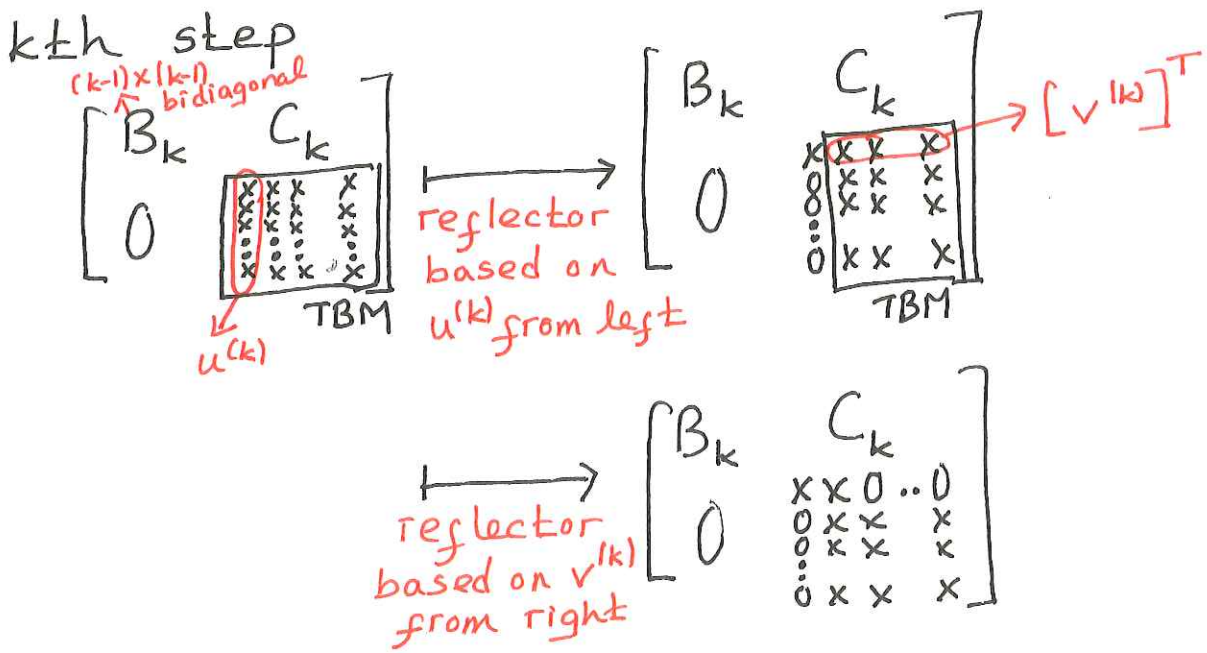 kth step
(k-1)×(k-1)
bidiagonal
B_k C_k
x x x x
x x x x
x x x x
0
x x x . . x
TBM
u^(k)
reflector
based on
u^(k) from left
B_k C_k
[v^(k)]^T
x x x x
0 x x x
0 x x x
0
0 x x x
TBM
reflector
based on v^(k)
from right
B_k C_k
x x 0 .. 0
0 x x x
0 x x x
0
0 x x x